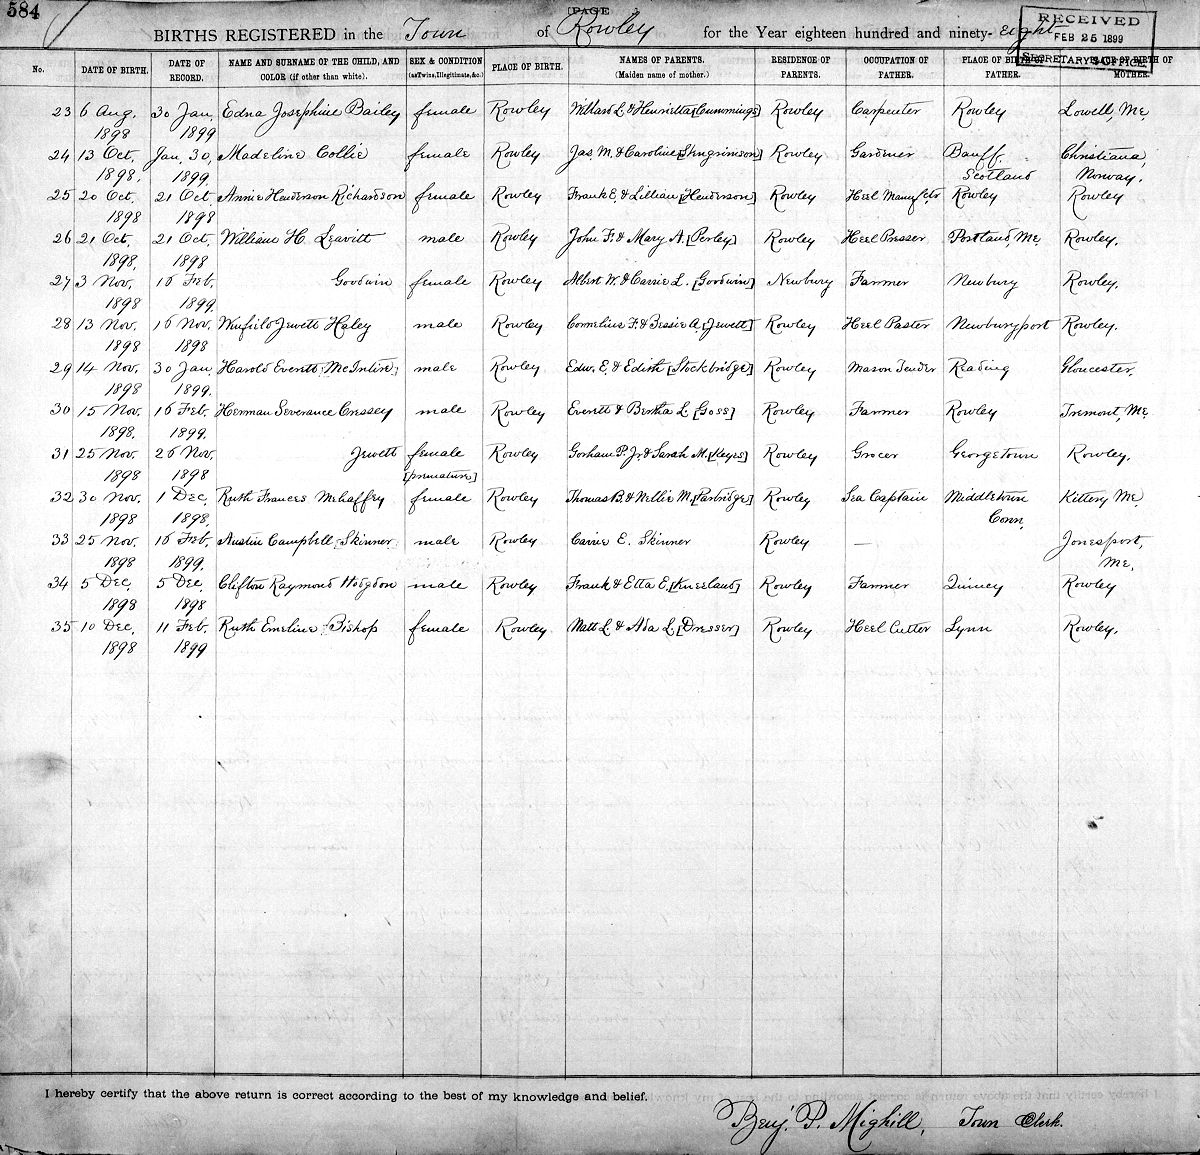 584
[PAGE ]
BIRTHS REGISTERED in the Town of Rowley for the Year eighteen hundred and ninety- eight
RECEIVED
FEB 25 1899
SECRETARY'S OFFICE
No. DATE OF BIRTH. DATE OF RECORD. NAME AND SURNAME OF THE CHILD, AND COLOR (if other than white). SEX & CONDITION (as Twins, Illegitimate, &c.) PLACE OF BIRTH. NAMES OF PARENTS. (Maiden name of mother.) RESIDENCE OF PARENTS. OCCUPATION OF FATHER. PLACE OF BIRTH OF FATHER. PLACE OF BIRTH OF MOTHER.
23 6 Aug. 30 Jan. Edna Josephine Bailey female Rowley Willard L. & Henrietta [Cummings] Rowley Carpenter Rowley Lowell, Me.
1898 1899
24 13 Oct. Jan. 30, Madeline Collie female Rowley Jas. M. & Caroline [Skngrimson] Rowley Gardener Banff, Christiana,
1898. 1899. Scotland Norway.
25 20 Oct. 21 Oct. Annie Henderson Richardson female Rowley Frank E. & Lillian [Henderson] Rowley Heel Manufctr Rowley Rowley
1898 1898
26 21 Oct. 21 Oct. William H. Leavitt male Rowley John F. & Mary A. [Perley] Rowley Heel Presser Portland, Me. Rowley.
1898. 1898
27 3 Nov. 16 Feb. Goodwin female Rowley Albert W. & Carrie L. [Goodwin] Newbury Farmer Newbury Rowley.
1898 1899.
28 13 Nov. 16 Nov. Winfield Jewett Haley male Rowley Cornelius F. & Bessie A. [Jewett] Rowley Heel Paster Newburyport Rowley.
1898 1898
29 14 Nov. 30 Jan. Harold Everett McIntire male Rowley Edw. E. & Edith [Stockbridge] Rowley Mason Tender Reading Gloucester.
1898 1899.
30 15 Nov. 16 Feb. Herman Severance Cressey male Rowley Everett & Bertha L. [Goss] Rowley Farmer Rowley Tremont, Me.
1898. 1899.
31 25 Nov. 26 Nov. Jewett female Rowley Gorham P. Jr. & Sarah M. [Keyes] Rowley Grocer Georgetown Rowley.
1898 1898 [premature]
32 30 Nov. 1 Dec. Ruth Frances Mehaffey female Rowley Thomas B. & Nellie M. [Parbridge] Rowley Sea Captain Middletown Kittery Me.
1898 1898. Conn.
33 25 Nov. 16 Feb. Austin Campbell Skinner male Rowley Carrie E. Skinner Rowley — Jonesport,
1898 1899. Me.
34 5 Dec. 5 Dec. Clifton Raymond Hodgdon male Rowley Frank & Etta E. [Kneeland] Rowley Farmer Quincy Rowley
1898 1898
35 10 Dec. 11 Feb. Ruth Emeline Bishop female Rowley Matt L. & Ada L. [Dresser] Rowley Heel Cutter Lynn Rowley.
1898 1899
I hereby certify that the above return is correct according to the best of my knowledge and belief.
Benj. P. Mighill, Town Clerk.